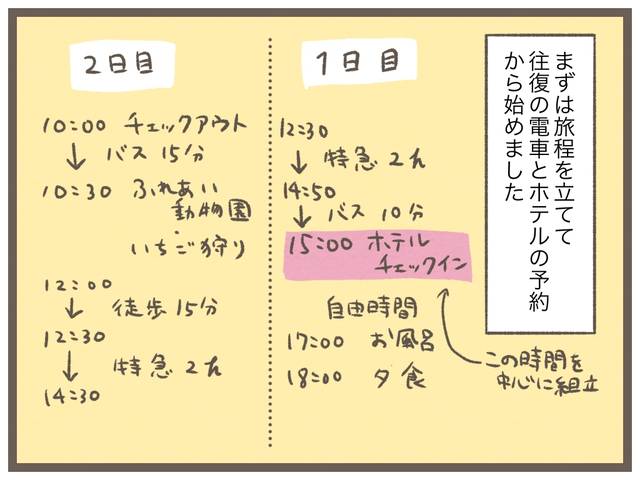 まずは旅程を立てて
往復の電車とホテルの予約
から始めました
1日目
12:30
↓ 特急 2h
14:50
↓ バス 10分
15:00 ホテル
チェックイン
自由時間
17:00 お風呂
18:00 夕食
この時間を
中心に組立
2日目
10:00 チェックアウト
↓ バス 15分
10:30 ふれあい
動物園
いちご狩り
12:00
↓ 徒歩 15分
12:30
↓ 特急 2h
14:30